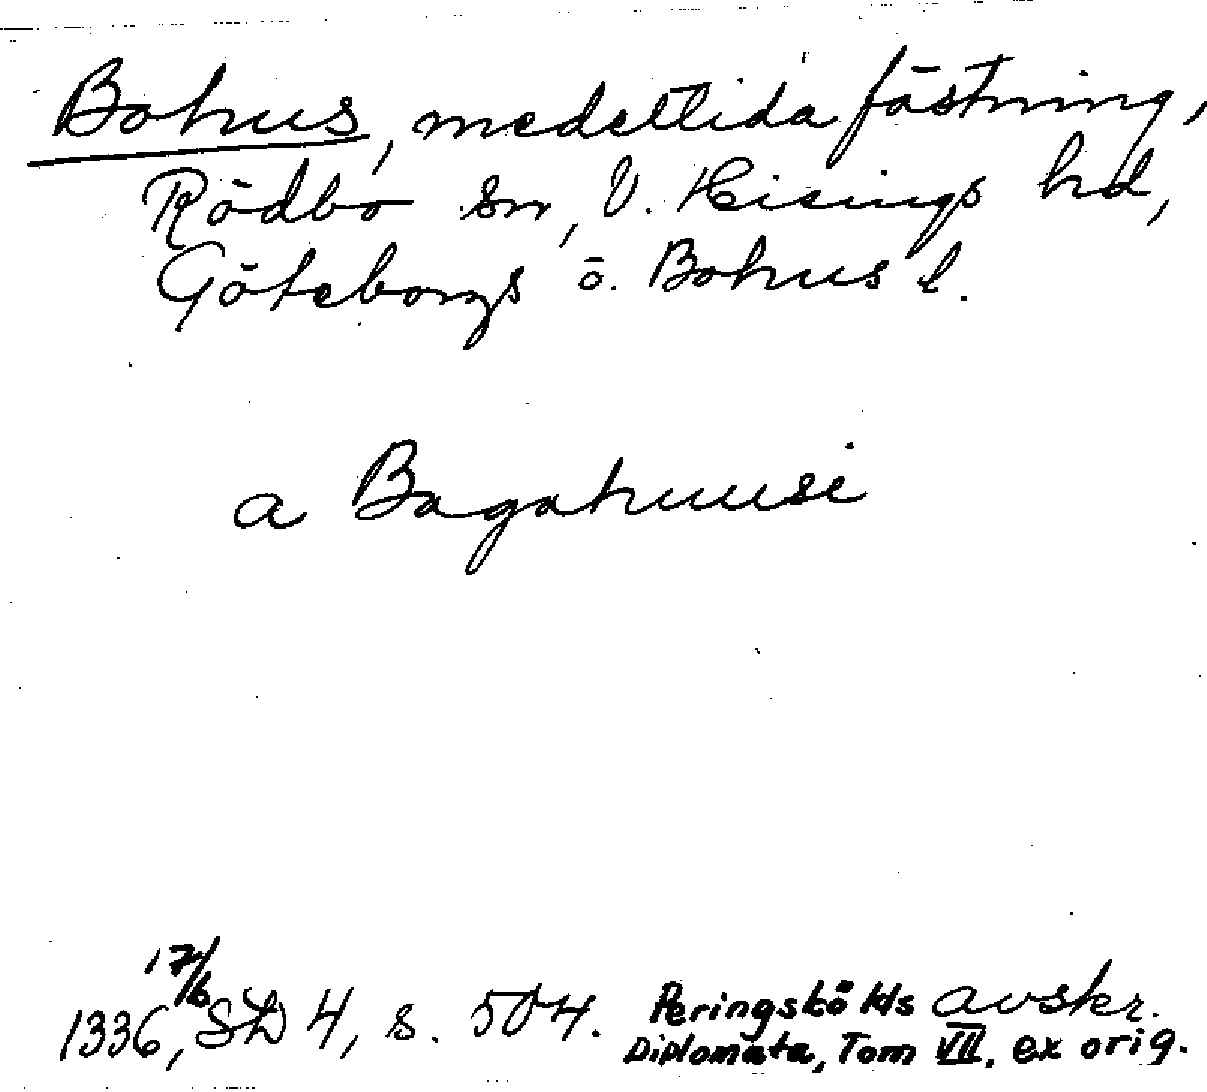 Bohus, medeltida fästning,
Rödbo sn, V. Hisings hd,
Göteborgs o. Bohus l.
a Bagahuusi
1336, 17/6 SD 4, s. 504. Peringskölds avskr.
Diplomata, Tom VII, ex orig.